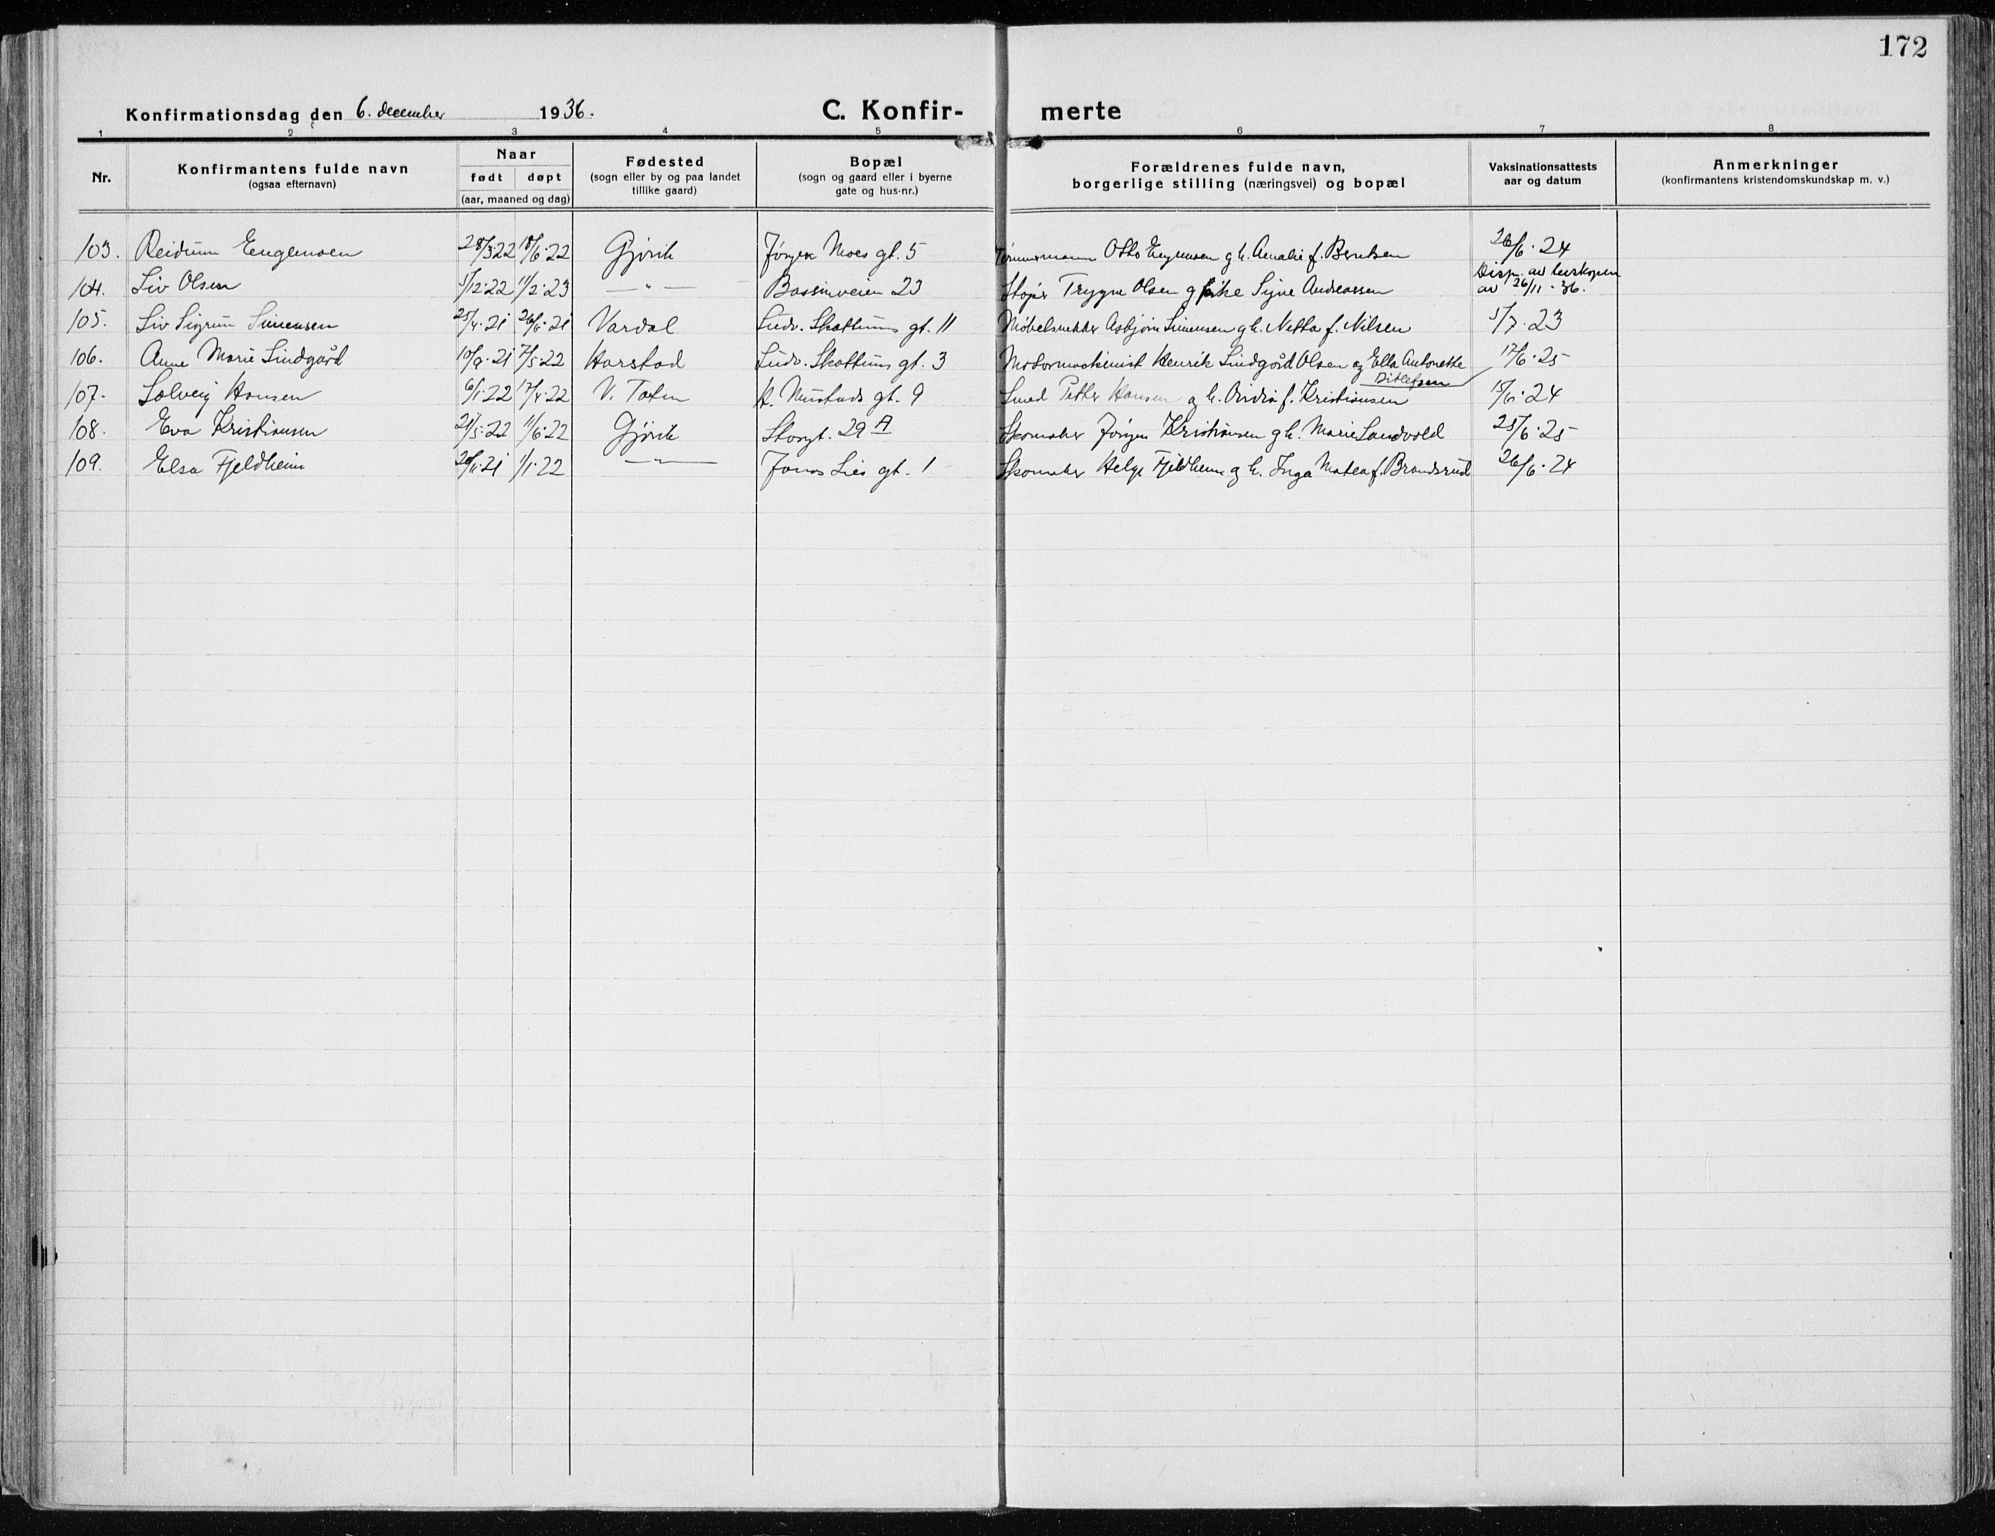 172
Konfirmationsdag den 6. december 1936. C. Konfir- merte
1 2 3 4 5 6 7 8
Nr. Konfirmantens fulde navn (ogsaa efternavn) Naar født døpt (aar, maaned og dag) Fødested (sogn eller by og paa landet tillike gaard) Bopæl (sogn og gaard eller i byerne gate og hus-nr.) Forældrenes fulde navn, borgerlige stilling (næringsvei) og bopæl Vaksinationsattests aar og datum Anmerkninger (konfirmantens kristendomskundskap m. v.)
103. Reidun Engensen 28/3 22 18/6·22 Gjøvik Jørgen Moes gt. 5 Tømmermann Otto Engensen g h. Amalie f. Berntsen 26/6·24
104. Liv Olsen /12·22 11/2·23 —„— Bassinveien 23 Trygve Olsen og Signe Andreassen Disp. av av 26/11·36.
105. Liv Sigrun Simensen 25/4·21 26/6·21 Vardal Ludv. Skattums gt. 11 Møbelsnekker Asbjørn Simensen g h. Netta f. Nilsen 5/7·23
106. Anne Marie Lindgård 10/9·21 7/5·22 Harstad Ludv. Skattums gt. 3 Motormaskinist Henrik Lindgård Olsen og Ella Antonette Ditlefsen 17/6·25
107. Solveig Hansen 6/1·22 17/4·22 V. Toten H. Mustads gt. 9 Smed Petter Hansen og h. f. Kristiansen /6·24
108. Eva Kristiansen 21/5·22 11/6·22 Gjøvik Storgt. 29 A Skomaker Jørgen Kristiansen g h. Marie Sandvold 25/6·25
109. Elsa Fjeldheim /11·21 1/1·22 —„— Jonas Lies gt. 1 Skomaker Helge Fjeldheim g h. Inga Matea f. Brandsrud 26/6·24